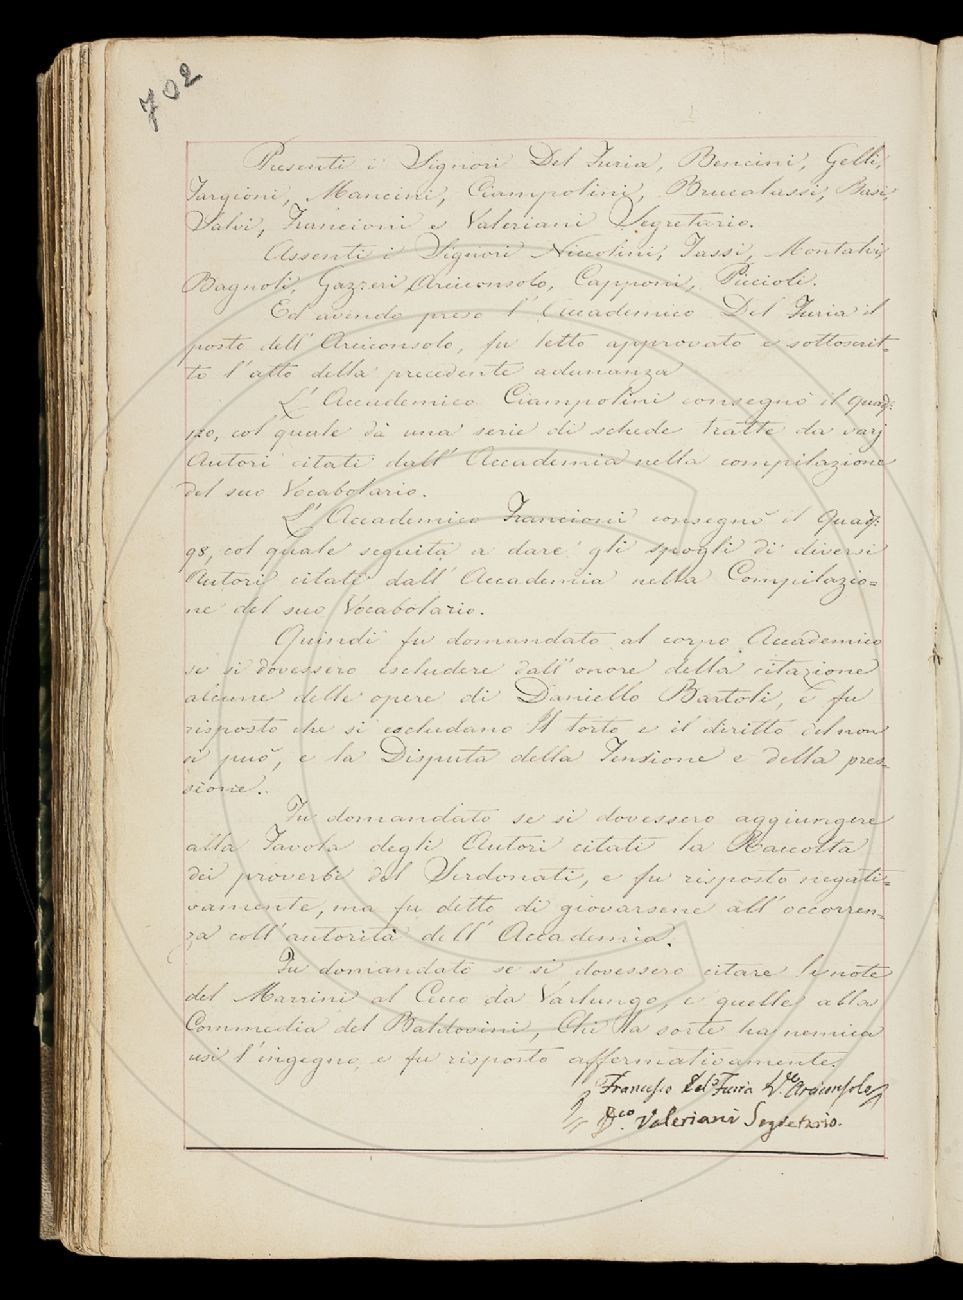 702
Presenti i Signori Del Furia, Bencini, Gelli,
Targioni, Mancini, Ciampolini, Brucalassi, Basi,
Salvi, Francioni e Valeriani Segretario.
Assenti i Signori Niccolini, Tassi, Montalvi,
Bagnoli, Gazzeri Arciconsolo, Capponi, Piccioli.
Ed avendo preso l'Accademico Del Furia il
posto dell'Arciconsolo, fu letto approvato e sottoscrit=
to l'atto della precedente adunanza
L'Accademico Ciampolini consegnò il quad:
col quale dà una serie di schede tratte da varj
Autori citati dall'Accademia nella compilazione
del suo Vocabolario.
L'Accademico Francioni consegnò il quad:
98, col quale seguita a dare gli spogli di diversi
Autori citati dall'Accademia nella Compilazio=
ne del suo Vocabolario.
Quindi fu domandato al corpo Accademico
se si dovessero escludere dall'onore della citazione
alcune delle opere di Daniello Bartoli, e fu
risposto che si escludano Il torto e il diritto del non
si può, e la Disputa della Tensione e della pres=
sione.
Fu domandato se si dovessero aggiungere
alla Tavola degli Autori citati la Raccolta
dei proverbi del Serdonati, e fu risposto negati=
vamente, ma fu detto di giovarsene all'occorren=
za coll'autorità dell'Accademia.
Fu domandato se si dovessero citare le note
del Marrini al Cecco da Varlungo, e quelle alla
Commedia del Baldovini, Chi la sorte ha nemica
usi l'ingegno, e fu risposto affermativamente.
Francesco Del Furia V.e Arciconsolo
D.co Valeriani Segretario.